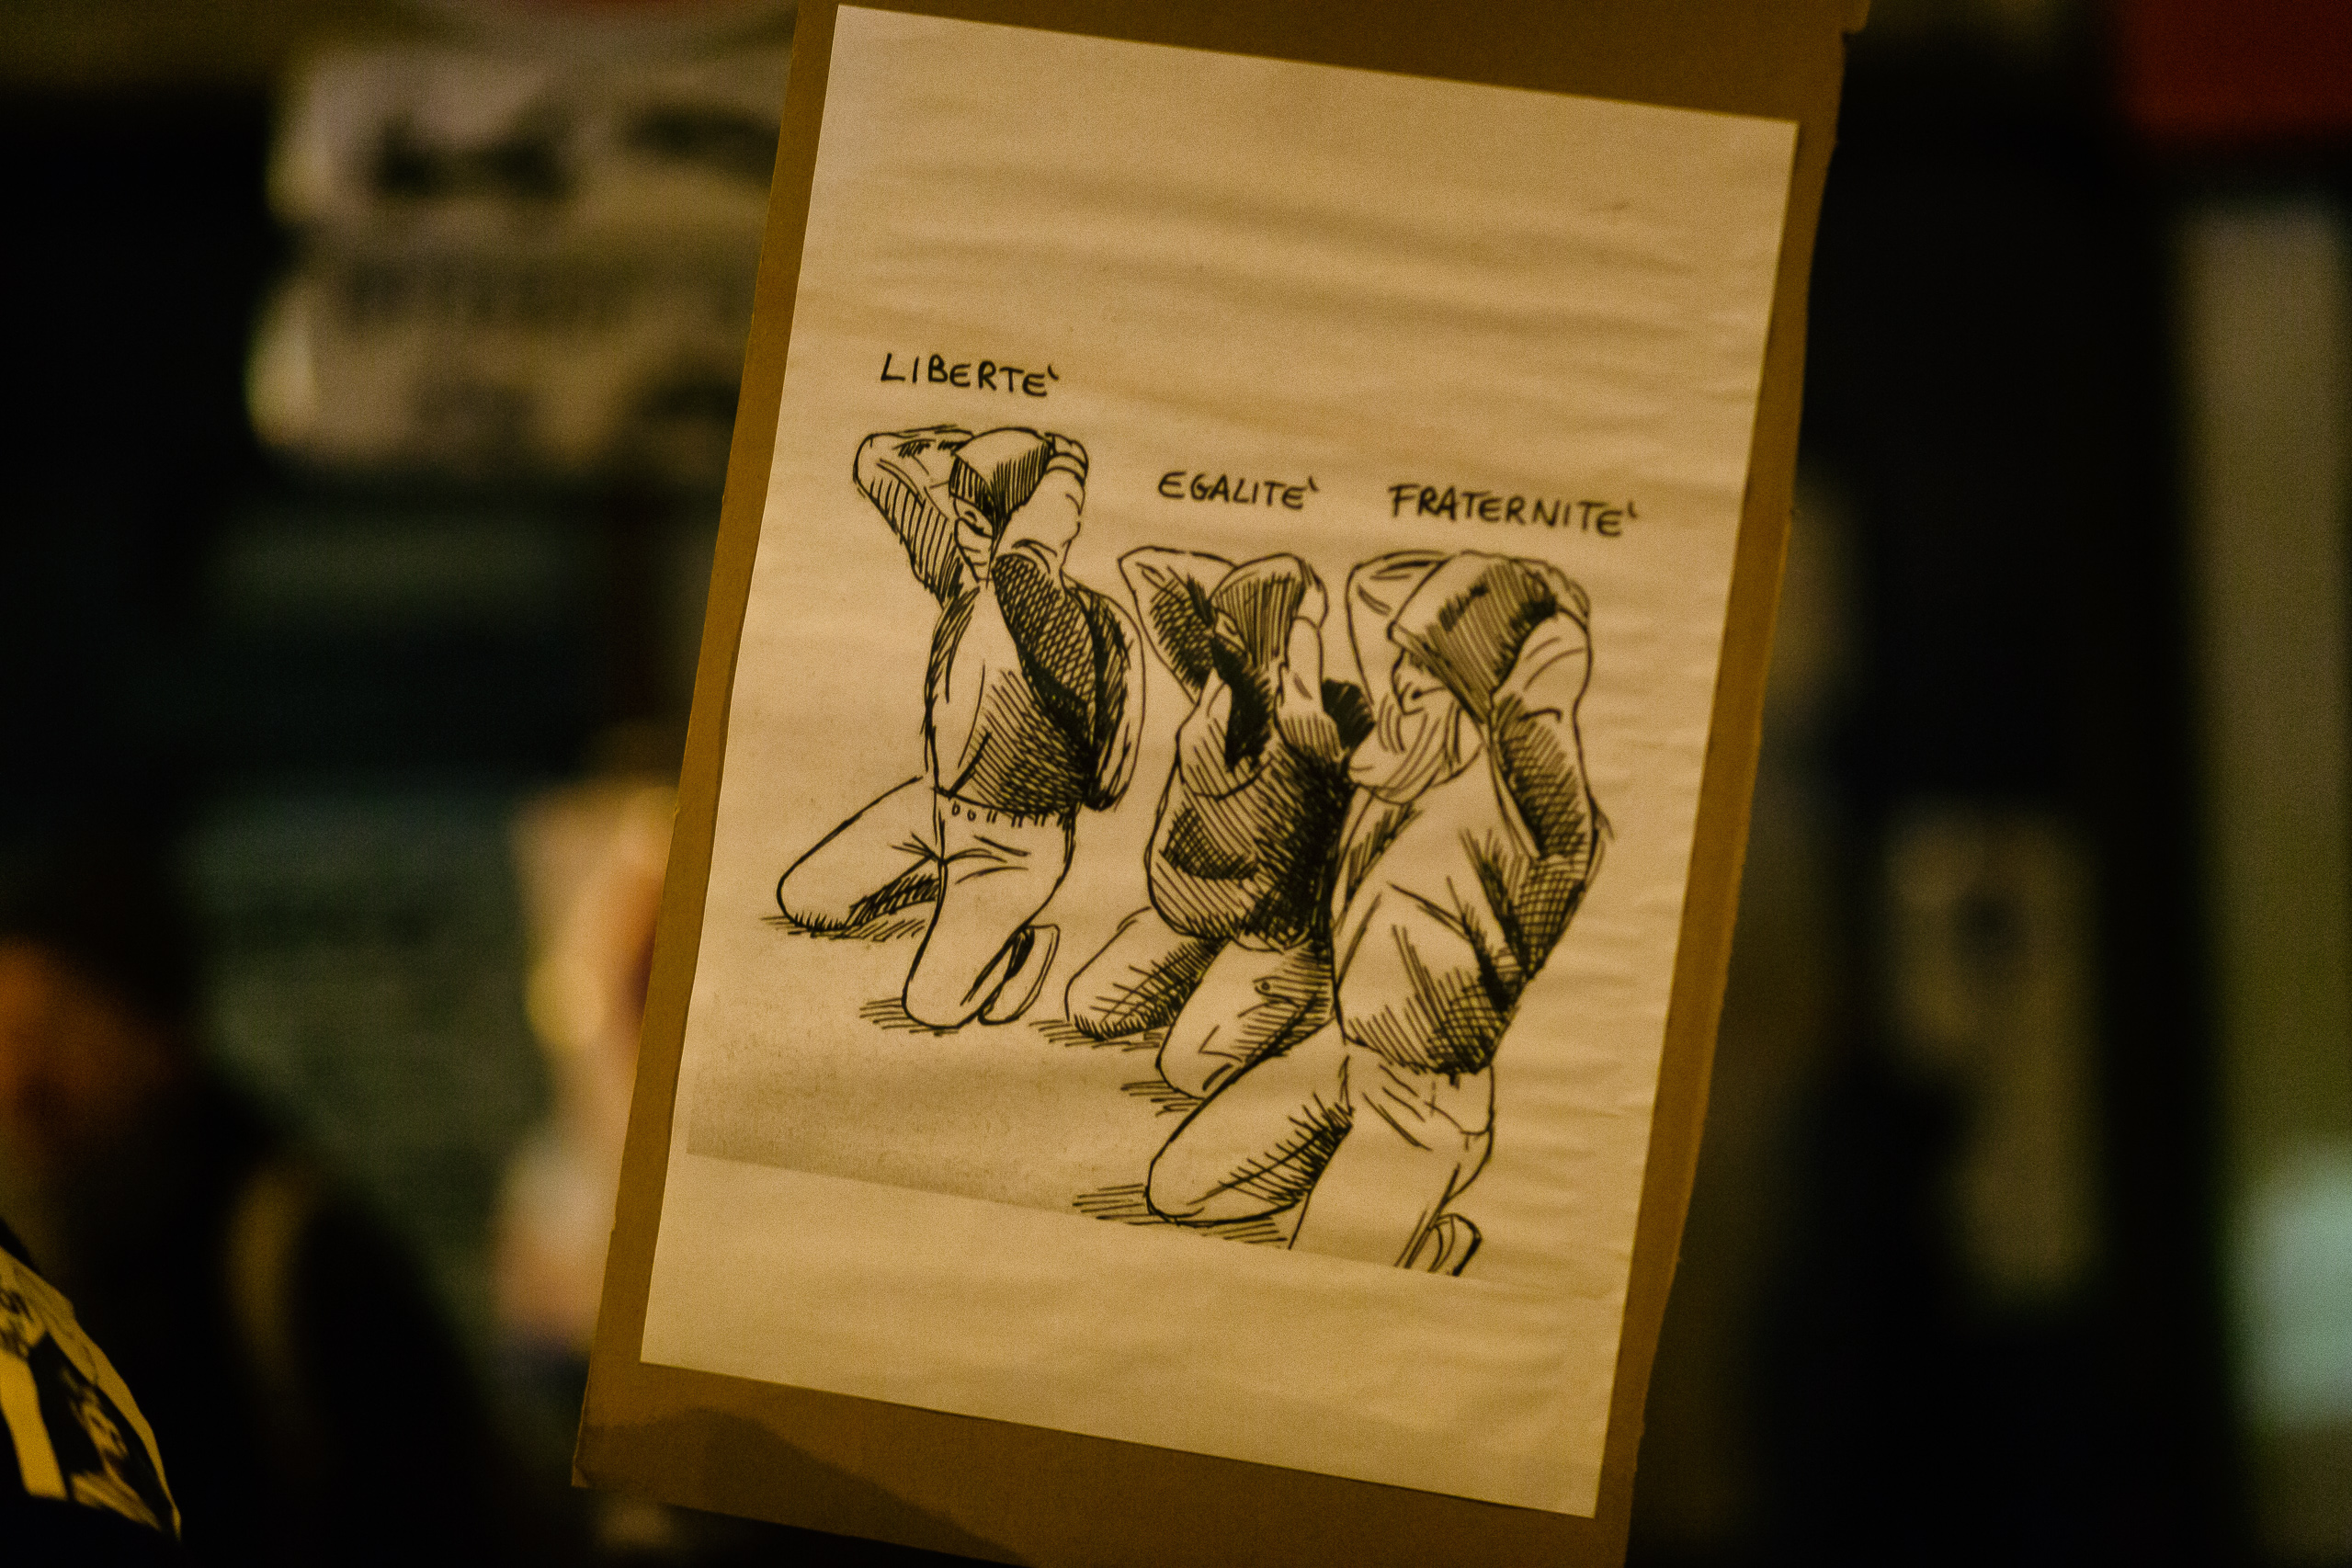 LIBERTE'
EGALITE' FRATERNITE'